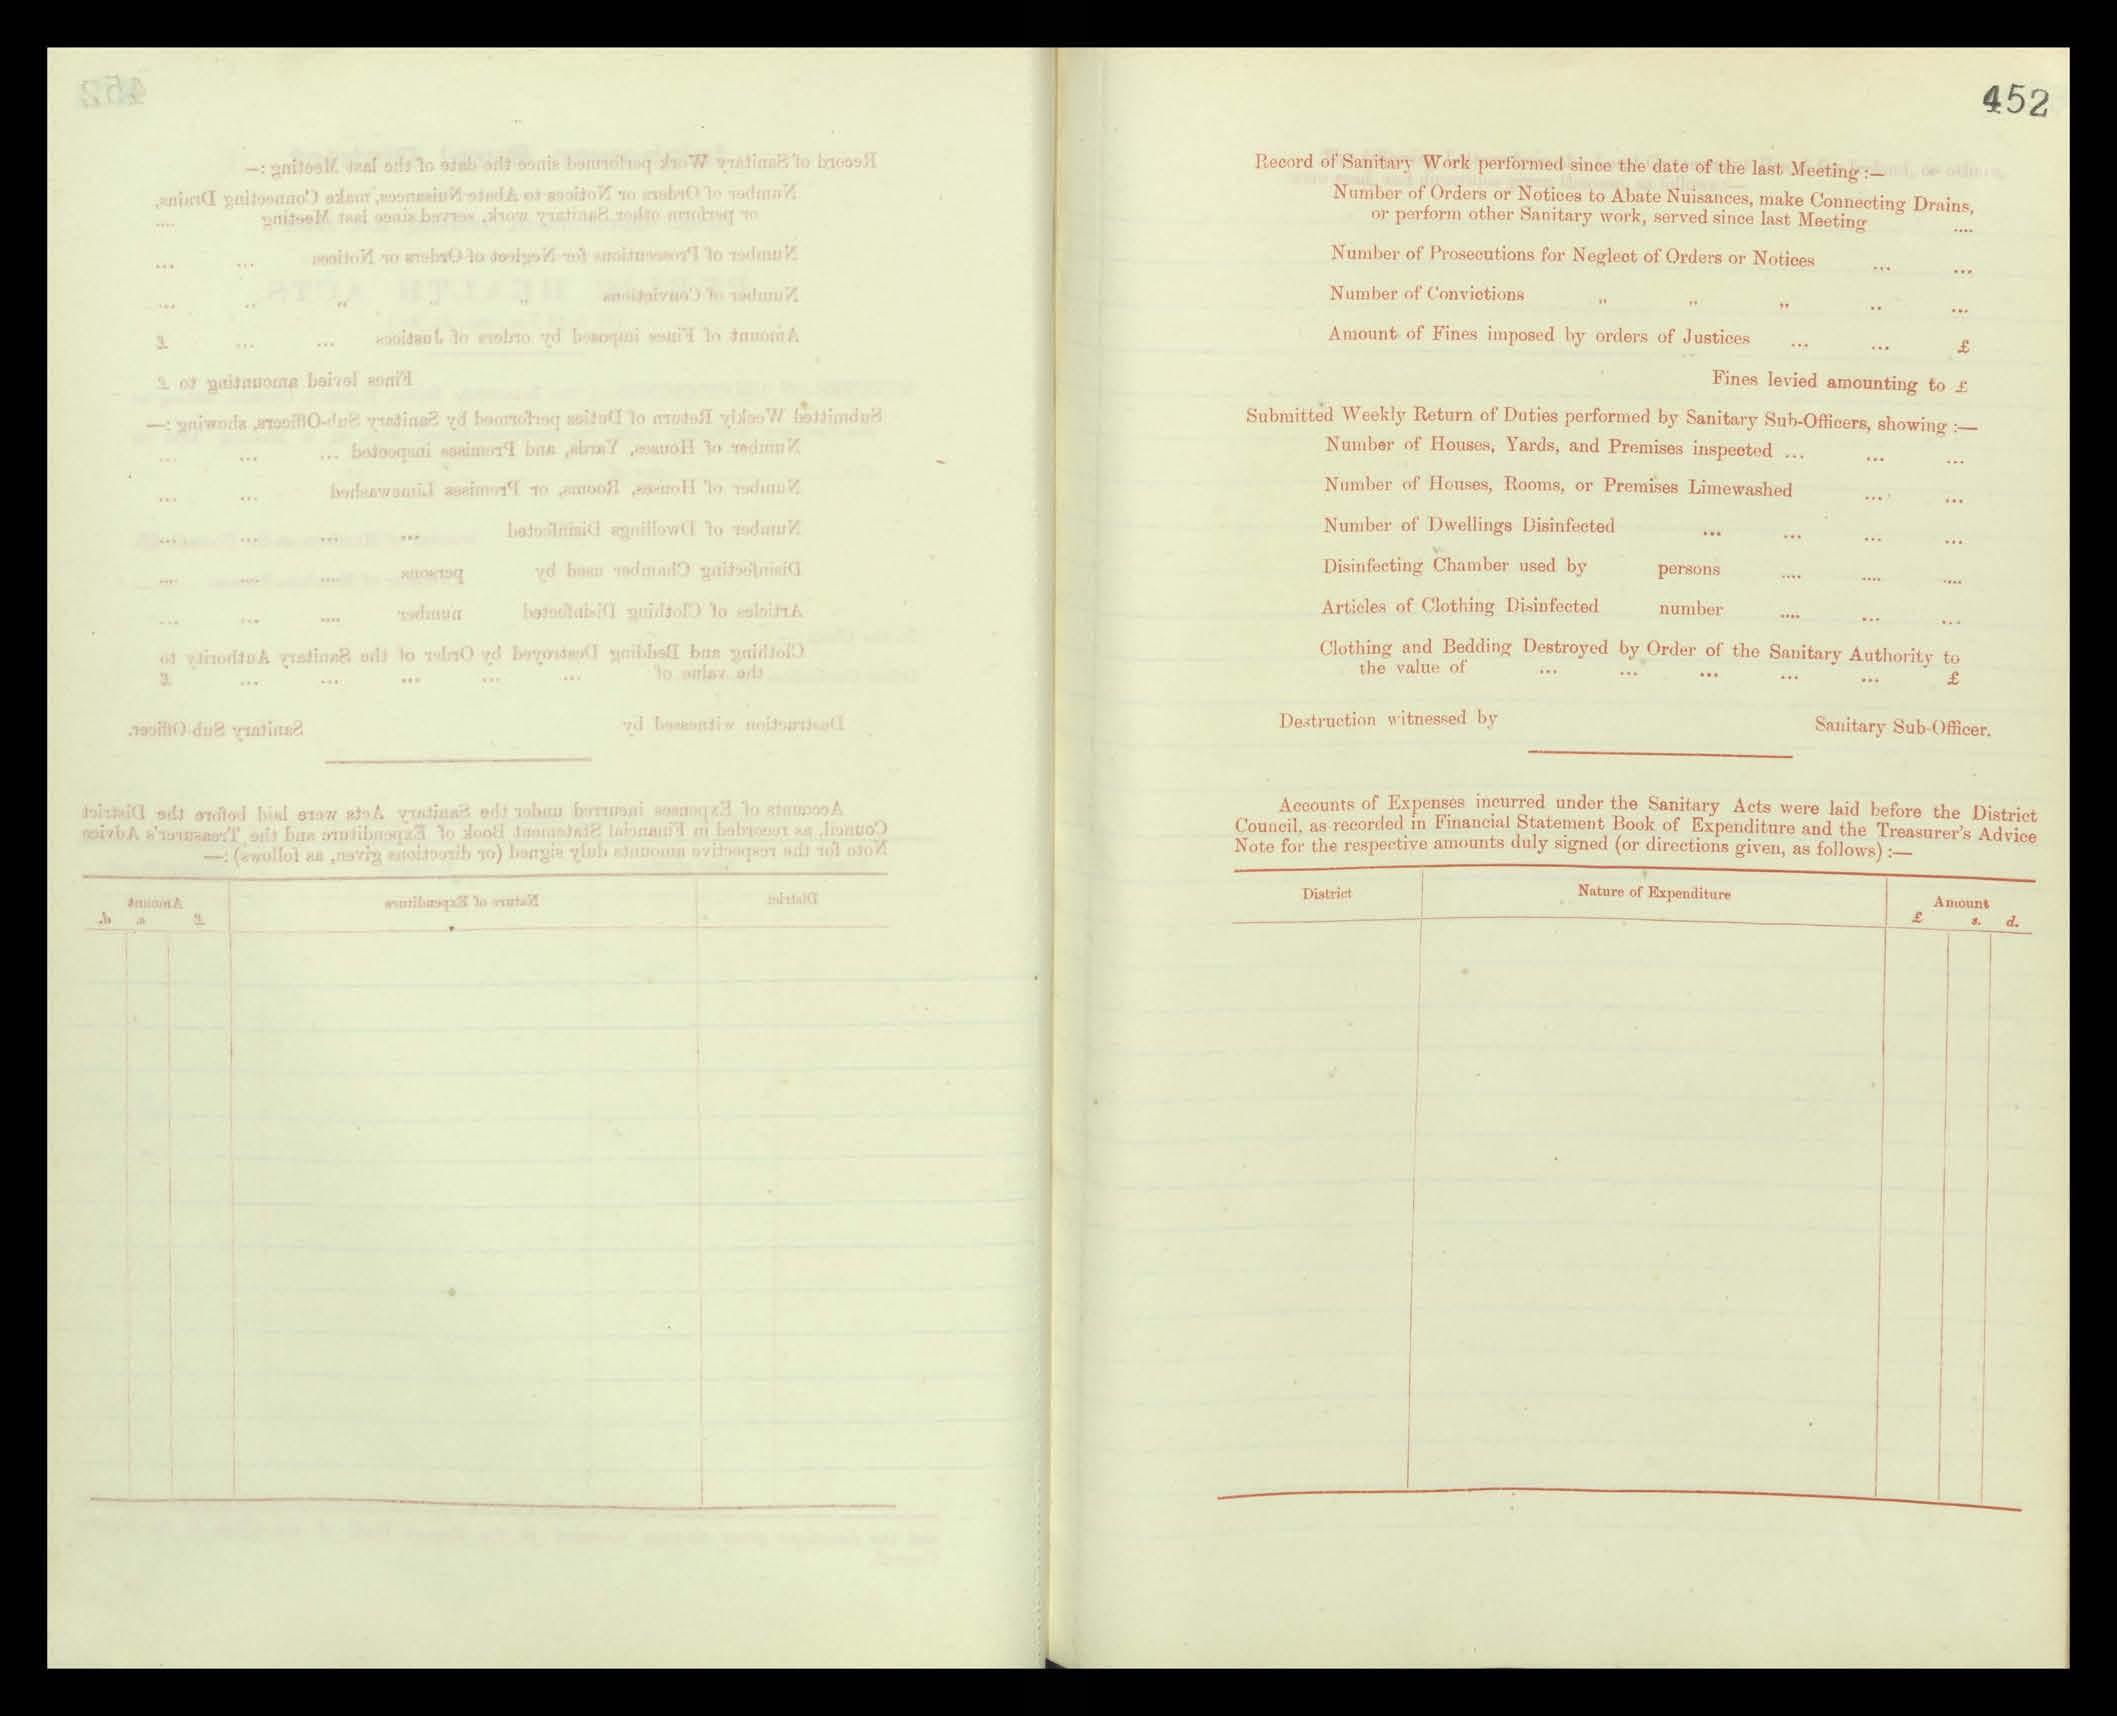 452
Record of Sanitary Work performed since the date of the last Meeting :—
Number of Orders or Notices to Abate Nuisances, make Connecting Drains,
or perform other Sanitary work, served since last Meeting ....
Number of Prosecutions for Neglect of Orders or Notices ... ...
Number of Convictions „ „ „ .. ...
Amount of Fines imposed by orders of Justices ... ... £
Fines levied amounting to £
Submitted Weekly Return of Duties performed by Sanitary Sub-Officers, showing :—
Number of Houses, Yards, and Premises inspected ... ... ...
Number of Houses, Rooms, or Premises Limewashed ... ...
Number of Dwellings Disinfected ... ... ... ...
Disinfecting Chamber used by persons .... .... ....
Articles of Clothing Disinfected number .... ... ...
Clothing and Bedding Destroyed by Order of the Sanitary Authority to
the value of ... ... ... ... ... £
Destruction witnessed by Sanitary Sub-Officer.
Accounts of Expenses incurred under the Sanitary Acts were laid before the District
Council, as recorded in Financial Statement Book of Expenditure and the Treasurer's Advice
Note for the respective amounts duly signed (or directions given, as follows) :—
District Nature of Expenditure Amount
£ s. d.